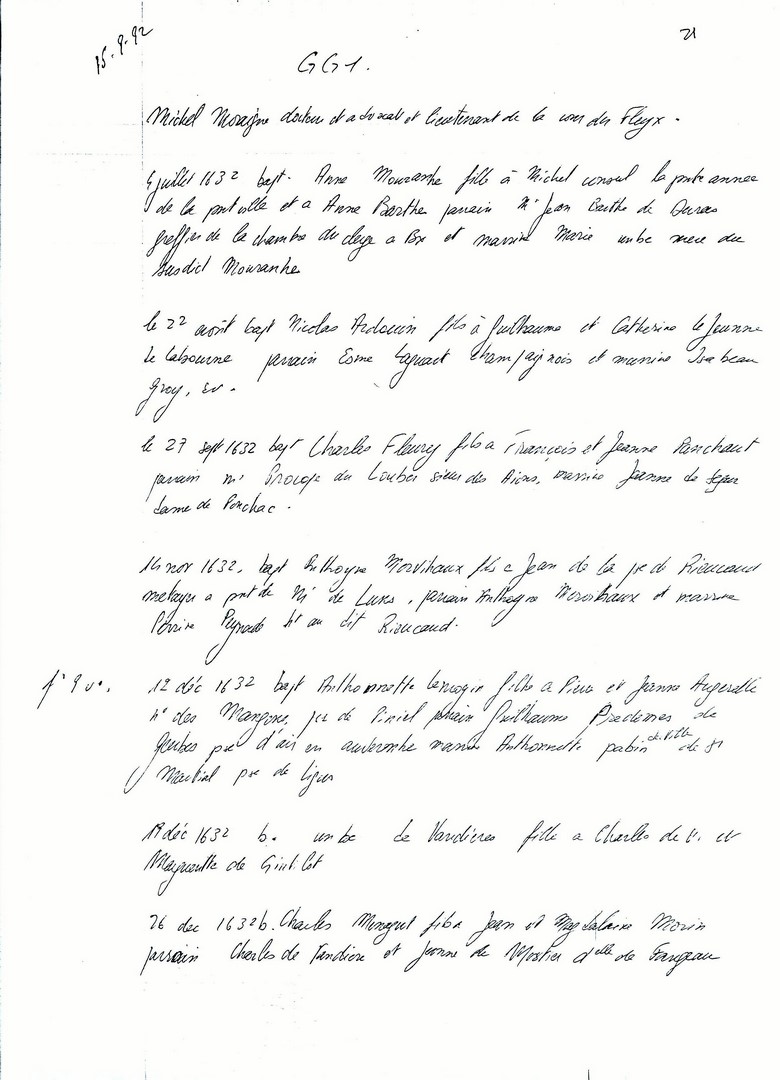 15-9-92
21
GG1.
Michel docteur et advocat et lieutenant de la cour du Fleyx.
juillet 1632 bapt. Anne Mouranhe fille à Michel consul la pnte annee
de la pnt ville et a Anne Barthe parain Mr Jean Barthe de Duras
greffier de la chambre du a Bx et marrine Marie umbe mere du
susdict Mouranhe
le 22 août bapt Nicolas Ardouin fils à Guilhaume et Catherine le Jeunne
de Labourne parain Esme Champagnois et marrine Isabeau
Groy, sr.
le 27 sept 1632 bapt Charles Fleury fils a François et Jeanne Panchaut
parain mr du Loubes sieur des Aions, marrine Jeanne de Segur
dame de Ponchac.
14 nov 1632, bapt Anthoyne fils a Jean de la pe de Rieucaud
metayer a pnt de Mr de Lures, parain Anthoyne et marrine
Perrine ht au dit Rieucaud.
f° 9 v°.
12 déc 1632 bapt Anthonnette filhe a Pierre et Jeanne
ht des Mangons, pe de Piniel parain Guilhaume de
pse d'ais en auvernhe marrine Anthonnette pabin de ville de St
Martial pse de
19 déc 1632 b. umbe de Vandières fille a Charles de V. et
Marguerite de
26 dec 1632 b. Charles fils a Jean et Magdalaine Morin
parrain Charles de et Jeanne de Mostier delle de Fargeau